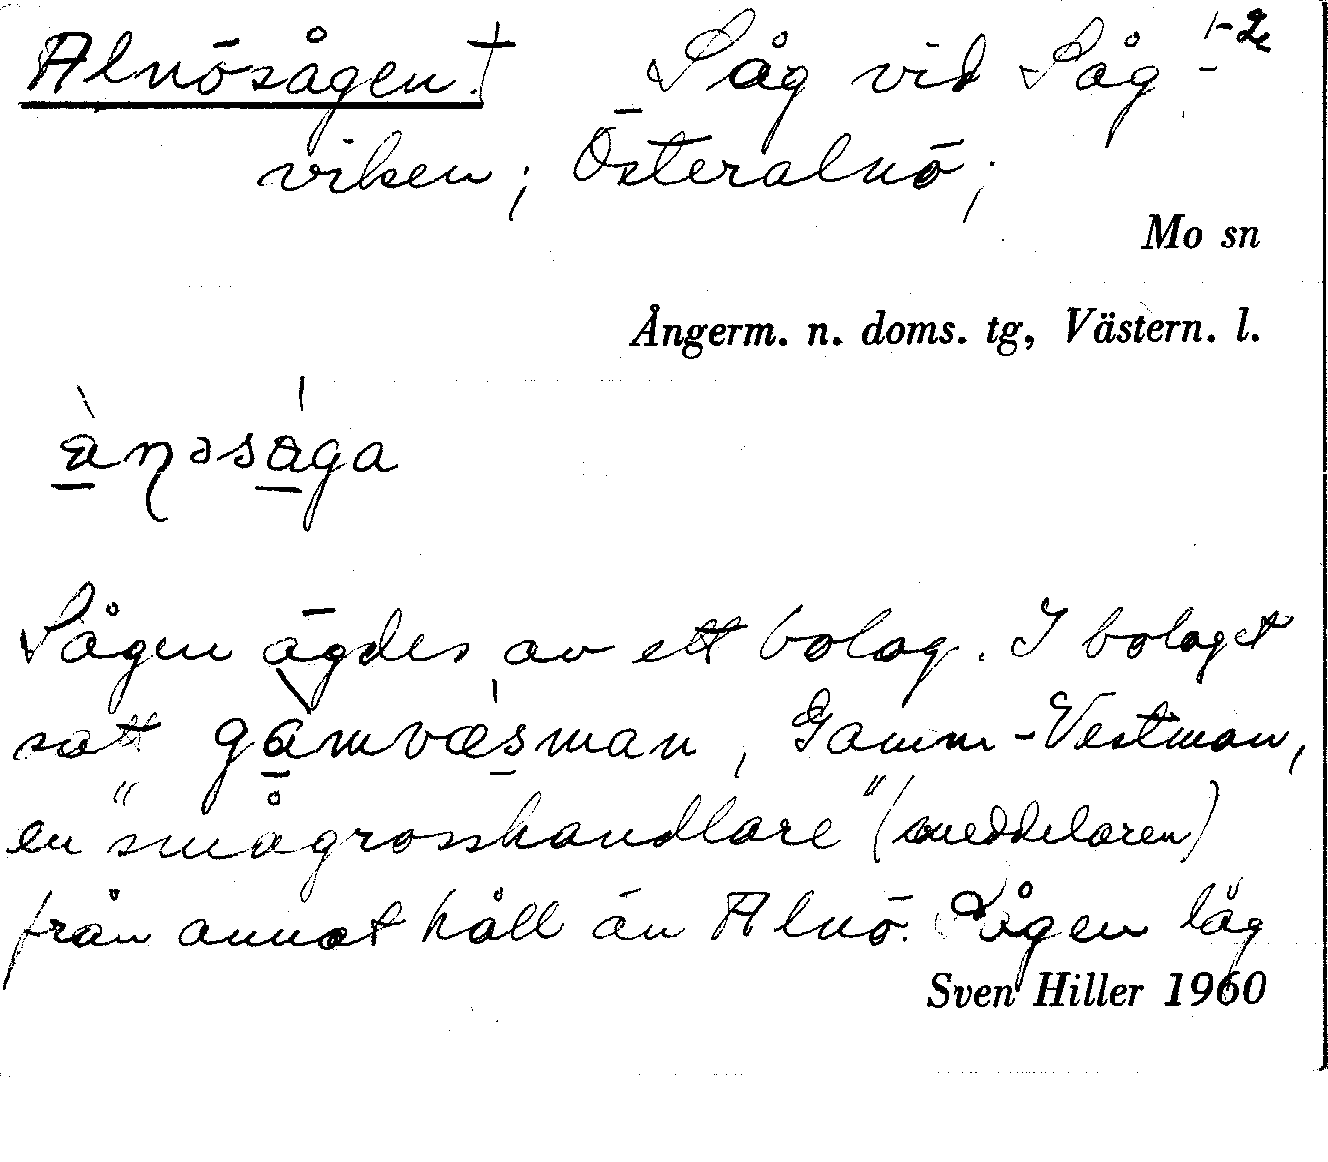 Alnösågen † Såg vid Såg- 1-2
viken; Österalnö;
Mo sn
Ångerm. n. doms. tg, Västern. l.
Sågen ägdes av ett bolag. I bolaget
satt gamvæsman, Gamm-Vestman,
en "smågrosshandlare" (meddelaren)
från annat håll än Alnö. Sågen låg
Sven Hiller 1960